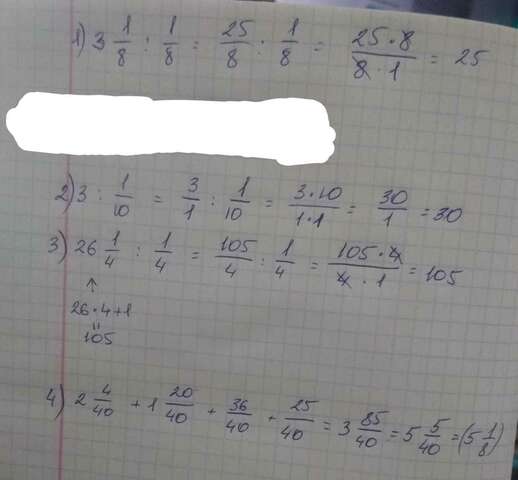 1) 3 1/8 : 1/8 = 25/8 : 1/8 = 25·8/8·1 = 25
2) 3 : 1/10 = 3/1 : 1/10 = 3·10/1·1 = 30/1 = 30
3) 26 1/4 : 1/4 = 105/4 : 1/4 = 105·4/4·1 = 105
↑
26·4+1
=
105
4) 2 4/40 + 1 20/40 + 36/40 + 25/40 = 3 85/40 = 5 5/40 = (5 1/8)